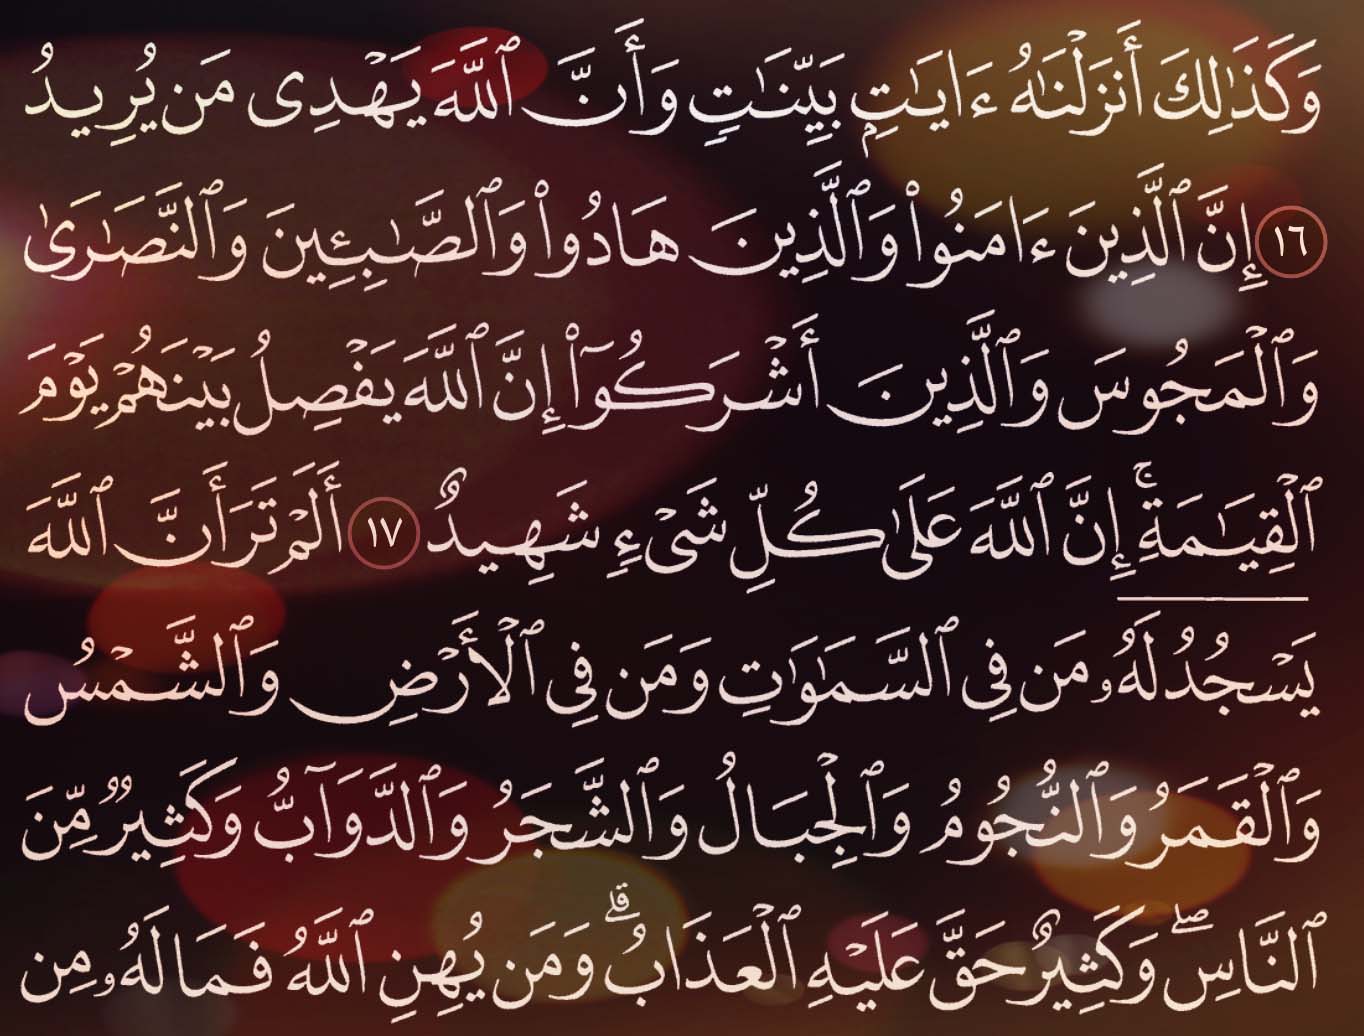 وَكَذَٰلِكَ أَنزَلْنَٰهُ ءَايَٰتِۭ بَيِّنَٰتٍ وَأَنَّ ٱللَّهَ يَهْدِى مَن يُرِيدُ
١٦ إِنَّ ٱلَّذِينَ ءَامَنُوا۟ وَٱلَّذِينَ هَادُوا۟ وَٱلصَّٰبِـِٔينَ وَٱلنَّصَٰرَىٰ
وَٱلْمَجُوسَ وَٱلَّذِينَ أَشْرَكُوٓا۟ إِنَّ ٱللَّهَ يَفْصِلُ بَيْنَهُمْ يَوْمَ
ٱلْقِيَٰمَةِ ۚ إِنَّ ٱللَّهَ عَلَىٰ كُلِّ شَىْءٍ شَهِيدٌ ١٧ أَلَمْ تَرَ أَنَّ ٱللَّهَ
يَسْجُدُ لَهُۥ مَن فِى ٱلسَّمَٰوَٰتِ وَمَن فِى ٱلْأَرْضِ وَٱلشَّمْسُ
وَٱلْقَمَرُ وَٱلنُّجُومُ وَٱلْجِبَالُ وَٱلشَّجَرُ وَٱلدَّوَآبُّ وَكَثِيرٌ مِّنَ
ٱلنَّاسِ ۖ وَكَثِيرٌ حَقَّ عَلَيْهِ ٱلْعَذَابُ ۗ وَمَن يُهِنِ ٱللَّهُ فَمَا لَهُۥ مِن